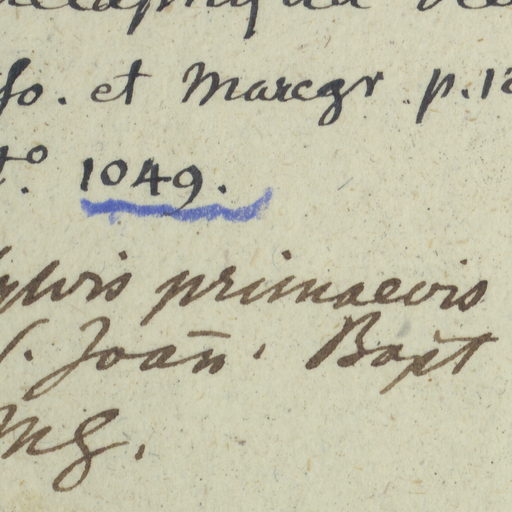 fo. et Marcgr. p. 12
to. 1049.
sylvis primaevis
S. Joañ. Bapt
Mg.